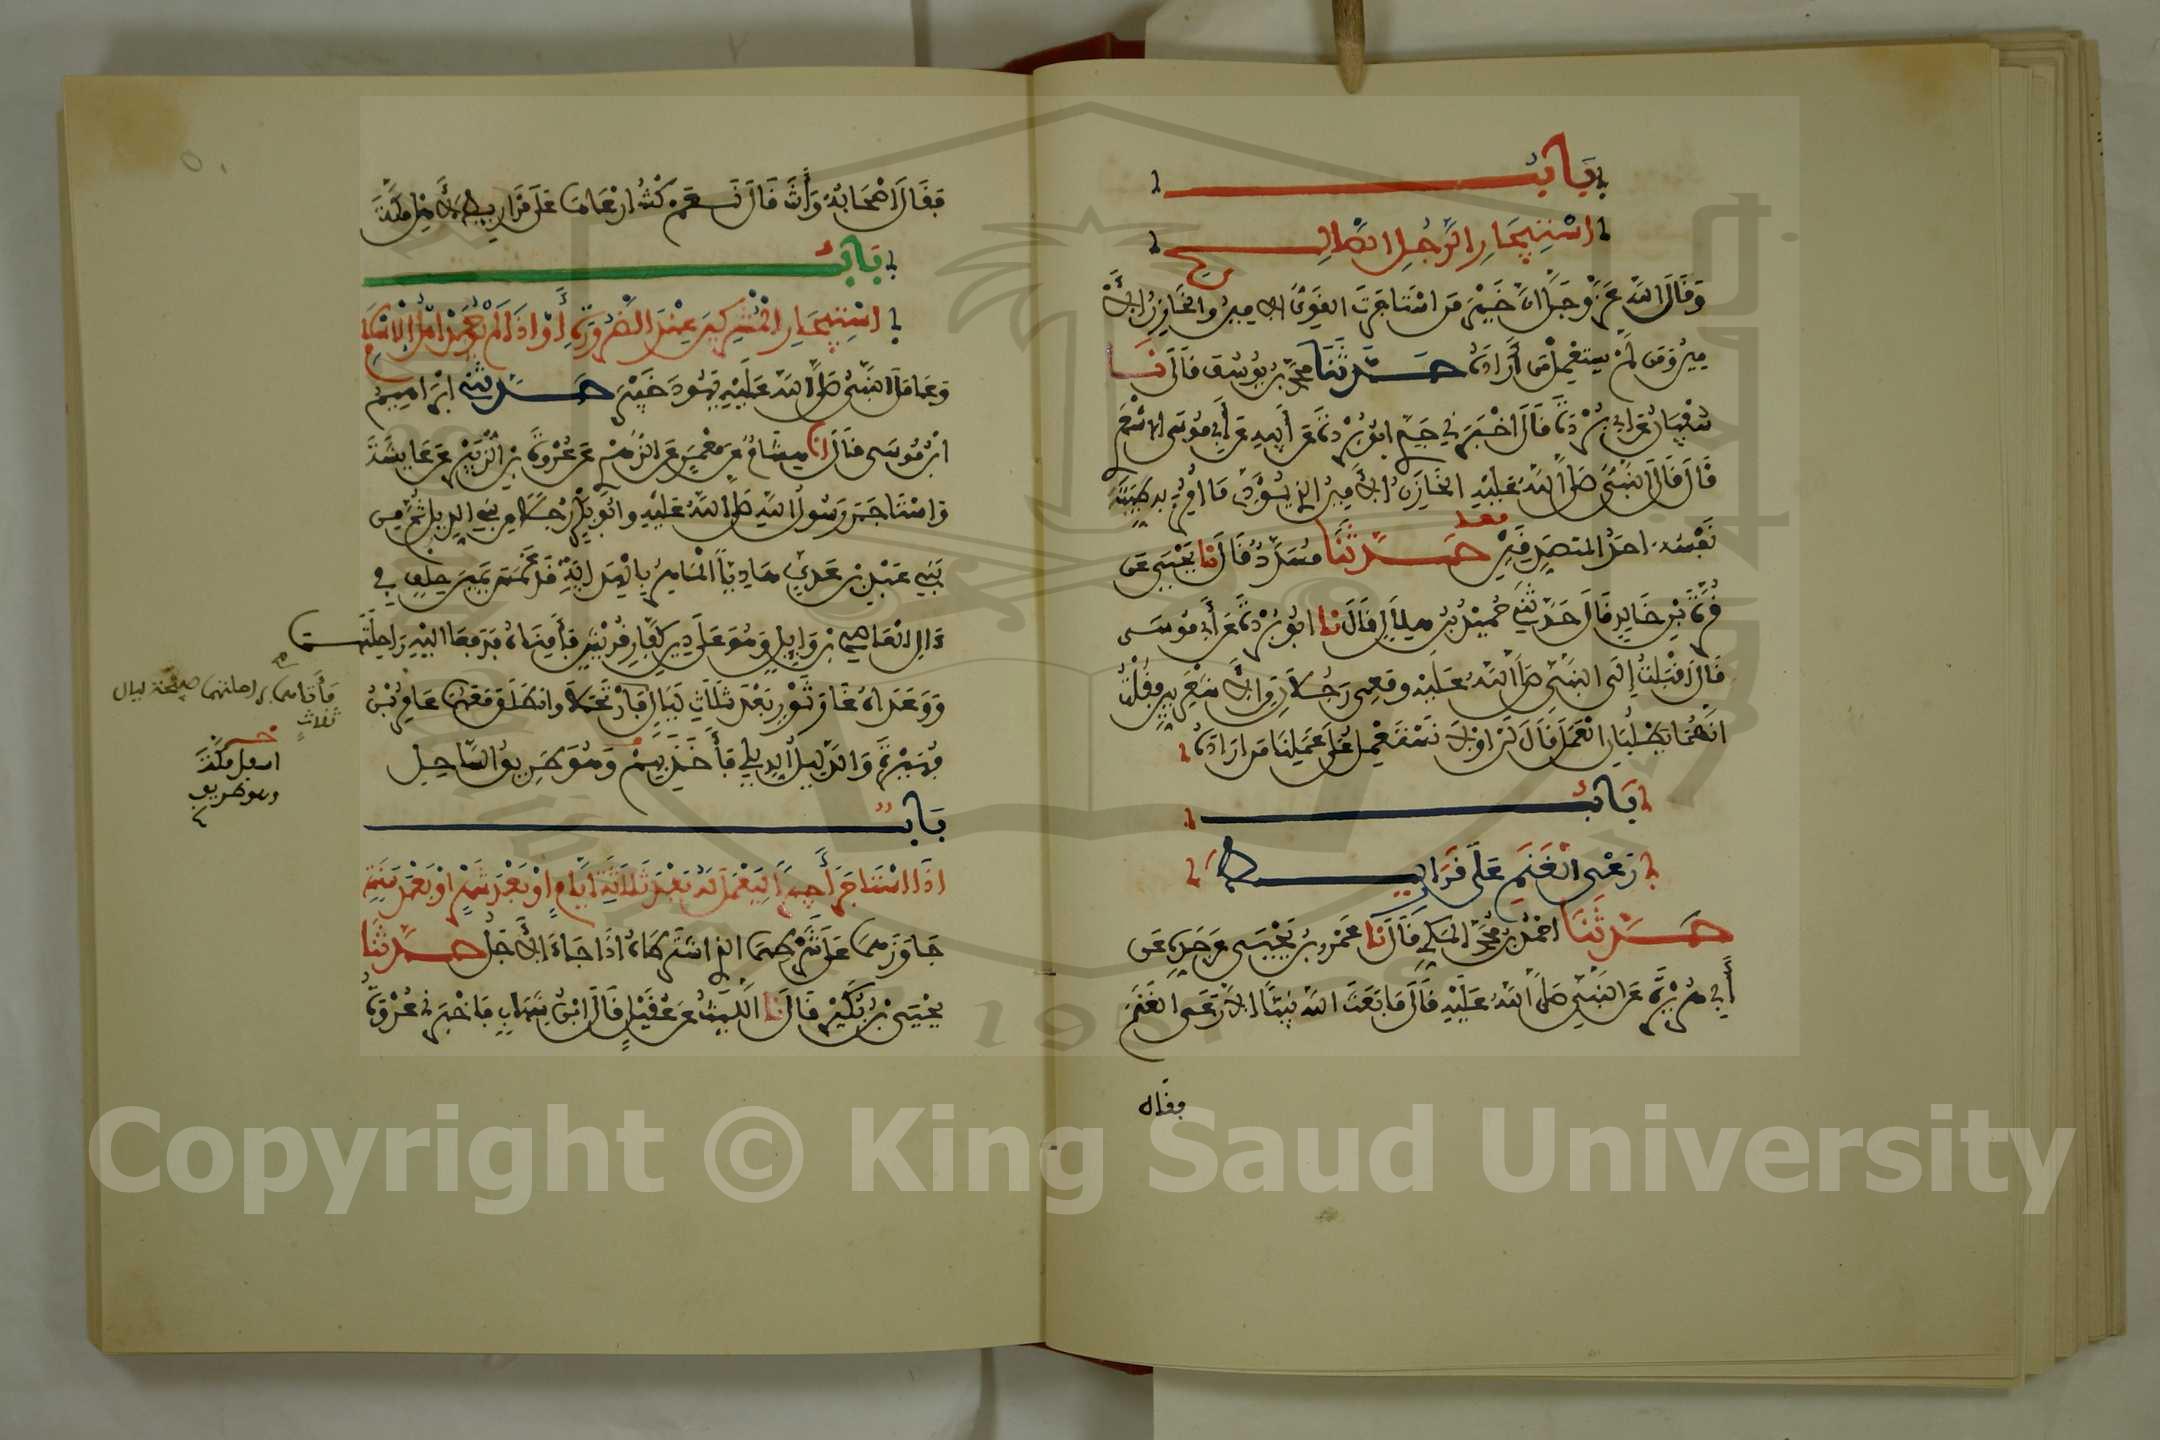 باب
استيجار الرجل الصالح
وقال الله عز وجل إن خير من استاجرت القوي الامين والخازن الأ
مين ومن لم يستعمل من أراده حدثنا محمد بن يوسف قال نا
سفيان عن ابي بردة قال اخبرني جدي ابو بردة عن أبيه عن أبي موسى الاشعري
قال قال النبي صلى الله عليه الخازن الأمين الذي يؤدي ما امر به طيبة
نفسه احد المتصدقين حدثنا مسدد قال نا يحيى عن
قرة بن خالد قال حدثني حميد بن هلال قال نا ابو بردة عن أبي موسى
قال اقبلت إلى النبي صلى الله عليه ومعي رجلان من الأشعريين فقلت
انهما يطلبان العمل قال لن او لا نستعمل على عملنا من اراده
باب
رعي الغنم على قراريط
حدثنا احمد بن محمد المكي قال نا عمرو بن يحيى عن جده عن
أبي هريرة عن النبي صلى الله عليه قال ما بعث الله نبيا الا رعى الغنم
فقال
فقال اصحابه وأنت قال نعم كنت ارعاها على قراريط لأهل مكة
باب
استيجار المشركين عند الضرورة أو اذا لم يوجد اهل الاسلام
وعامل النبي صلى الله عليه يهود خيبر حدثني ابراهيم
ابن موسى قال انا هشام عن معمر عن الزهري عن عروة بن الزبير عن عايشة
واستاجر رسول الله صلى الله عليه وابو بكر رجلا من بني الديل ثم من
بني عبد بن عدي هاديا الماهر بالهداية قد غمس يمين حلف في
ءال العاصي بن وايل وهو على دين كفار قريش فأمناه فدفعا اليه راحلتيهما
ووعداه غار ثور بعد ثلاث ليال فارتحلا وانطلق معهما عامر بن
فهيرة والدليل الديلي فأخذ بهم وهو طريق الساحل
فأتاهما براحلتيهما صبيحة ليال
ثلاث
اسفل مكة
وهو طريق
باب
اذا استاجر أجيرا ليعمل له بعد ثلاثة ايام او بعد شهر او بعد سنة
جاز وهما على شرطهما الذي اشترطاه اذا جاء الأجل حدثنا
يحيى بن بكير قال نا الليث عن عقيل قال ابن شهاب فاخبرني عروة